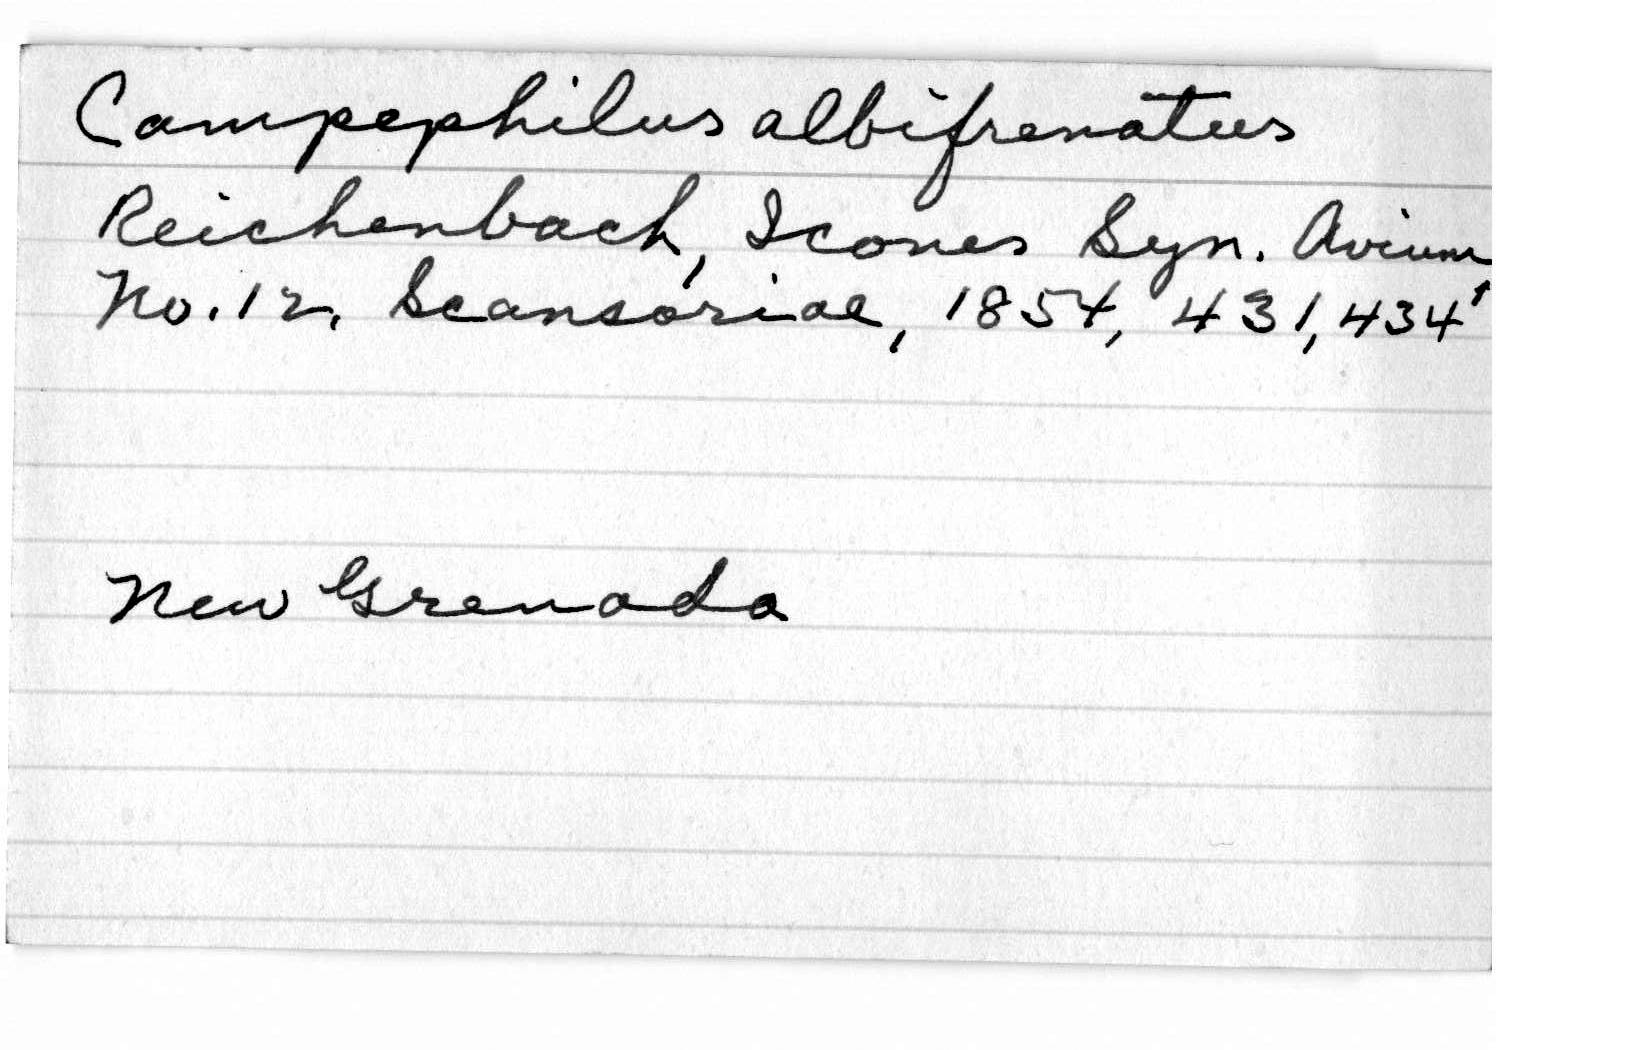 Campephilus albifrenatus
Reichenbach, Icones Syn. Avium
No. 12, Scansoriae, 1854, 431, 434
New Grenada